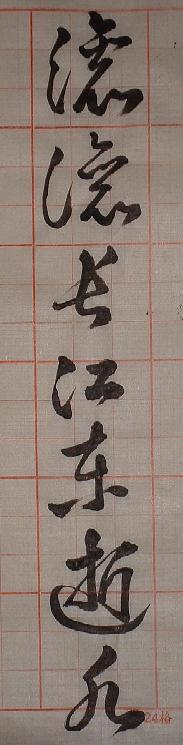 滚滚长江东逝水
24格